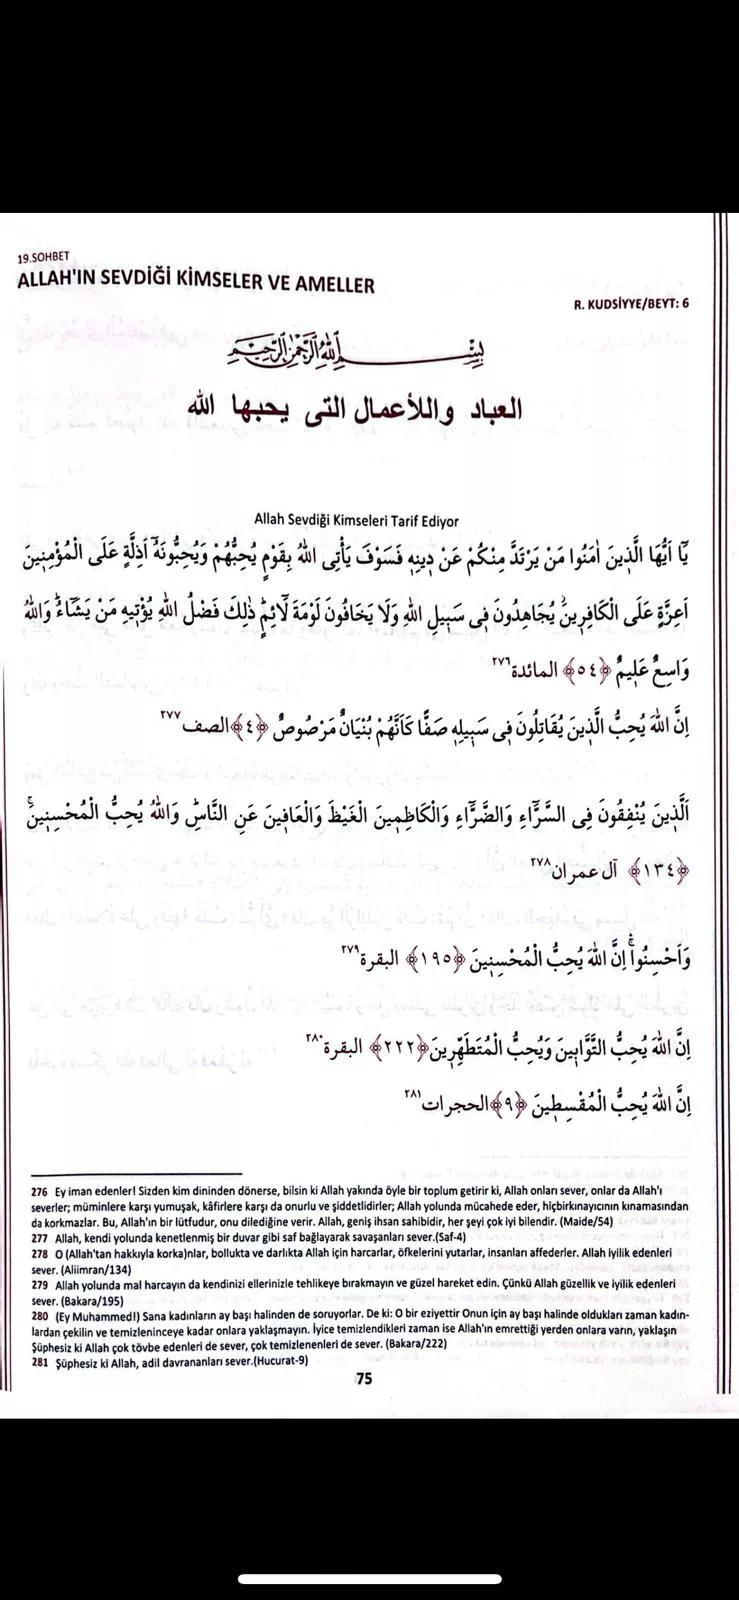 19.SOHBET
ALLAH'IN SEVDİĞİ KİMSELER VE AMELLER
R. KUDSİYYE/BEYT: 6
بِسْمِ اللهِ الرَّحْمٰنِ الرَّحِيمِ
العباد واللأعمال التى يحبها الله
Allah Sevdiği Kimseleri Tarif Ediyor
يَٓا اَيُّهَا الَّذِينَ اٰمَنُوا مَنْ يَرْتَدَّ مِنْكُمْ عَنْ دِينِهٖ فَسَوْفَ يَأْتِى اللهُ بِقَوْمٍ يُحِبُّهُمْ وَيُحِبُّونَهُٓ اَذِلَّةٍ عَلَى الْمُؤْمِنِينَ
اَعِزَّةٍ عَلَى الْكَافِرِينَۘ يُجَاهِدُونَ فِى سَبِيلِ اللهِ وَلَا يَخَافُونَ لَوْمَةَ لَٓائِمٍۜ ذٰلِكَ فَضْلُ اللهِ يُؤْتِيهِ مَنْ يَشَٓاءُۜ وَاللهُ
وَاسِعٌ عَلِيمٌ ﴿٥٤﴾ المائدة٢٧٦
اِنَّ اللهَ يُحِبُّ الَّذِينَ يُقَاتِلُونَ فِى سَبِيلِهٖ صَفًّا كَاَنَّهُمْ بُنْيَانٌ مَرْصُوصٌ ﴿٤﴾الصف٢٧٧
اَلَّذِينَ يُنْفِقُونَ فِى السَّرَّٓاءِ وَالضَّرَّٓاءِ وَالْكَاظِمِينَ الْغَيْظَ وَالْعَافِينَ عَنِ النَّاسِۜ وَاللهُ يُحِبُّ الْمُحْسِنِينَۚ
﴿١٣٤﴾ آل عمران٢٧٨
وَاَحْسِنُواۚ اِنَّ اللهَ يُحِبُّ الْمُحْسِنِينَ ﴿١٩٥﴾ البقرة٢٧٩
اِنَّ اللهَ يُحِبُّ التَّوَّابِينَ وَيُحِبُّ الْمُتَطَهِّرِينَ﴿٢٢٢﴾ البقرة٢٨٠
اِنَّ اللهَ يُحِبُّ الْمُقْسِطِينَ ﴿٩﴾الحجرات٢٨١
276 Ey iman edenler! Sizden kim dininden dönerse, bilsin ki Allah yakında öyle bir toplum getirir ki, Allah onları sever, onlar da Allah'ı
severler; müminlere karşı yumuşak, kâfirlere karşı da onurlu ve şiddetlidirler; Allah yolunda mücahede eder, hiçbirkınayıcının kınamasından
da korkmazlar. Bu, Allah'ın bir lütfudur, onu dilediğine verir. Allah, geniş ihsan sahibidir, her şeyi çok iyi bilendir. (Maide/54)
277 Allah, kendi yolunda kenetlenmiş bir duvar gibi saf bağlayarak savaşanları sever.(Saf-4)
278 O (Allah'tan hakkıyla korka)nlar, bollukta ve darlıkta Allah için harcarlar, öfkelerini yutarlar, insanları affederler. Allah iyilik edenleri
sever. (Aliimran/134)
279 Allah yolunda mal harcayın da kendinizi ellerinizle tehlikeye bırakmayın ve güzel hareket edin. Çünkü Allah güzellik ve iyilik edenleri
sever. (Bakara/195)
280 (Ey Muhammed!) Sana kadınların ay başı halinden de soruyorlar. De ki: O bir eziyettir Onun için ay başı halinde oldukları zaman kadın-
lardan çekilin ve temizleninceye kadar onlara yaklaşmayın. İyice temizlendikleri zaman ise Allah'ın emrettiği yerden onlara varın, yaklaşın
Şüphesiz ki Allah çok tövbe edenleri de sever, çok temizlenenleri de sever. (Bakara/222)
281 Şüphesiz ki Allah, adil davrananları sever.(Hucurat-9)
75